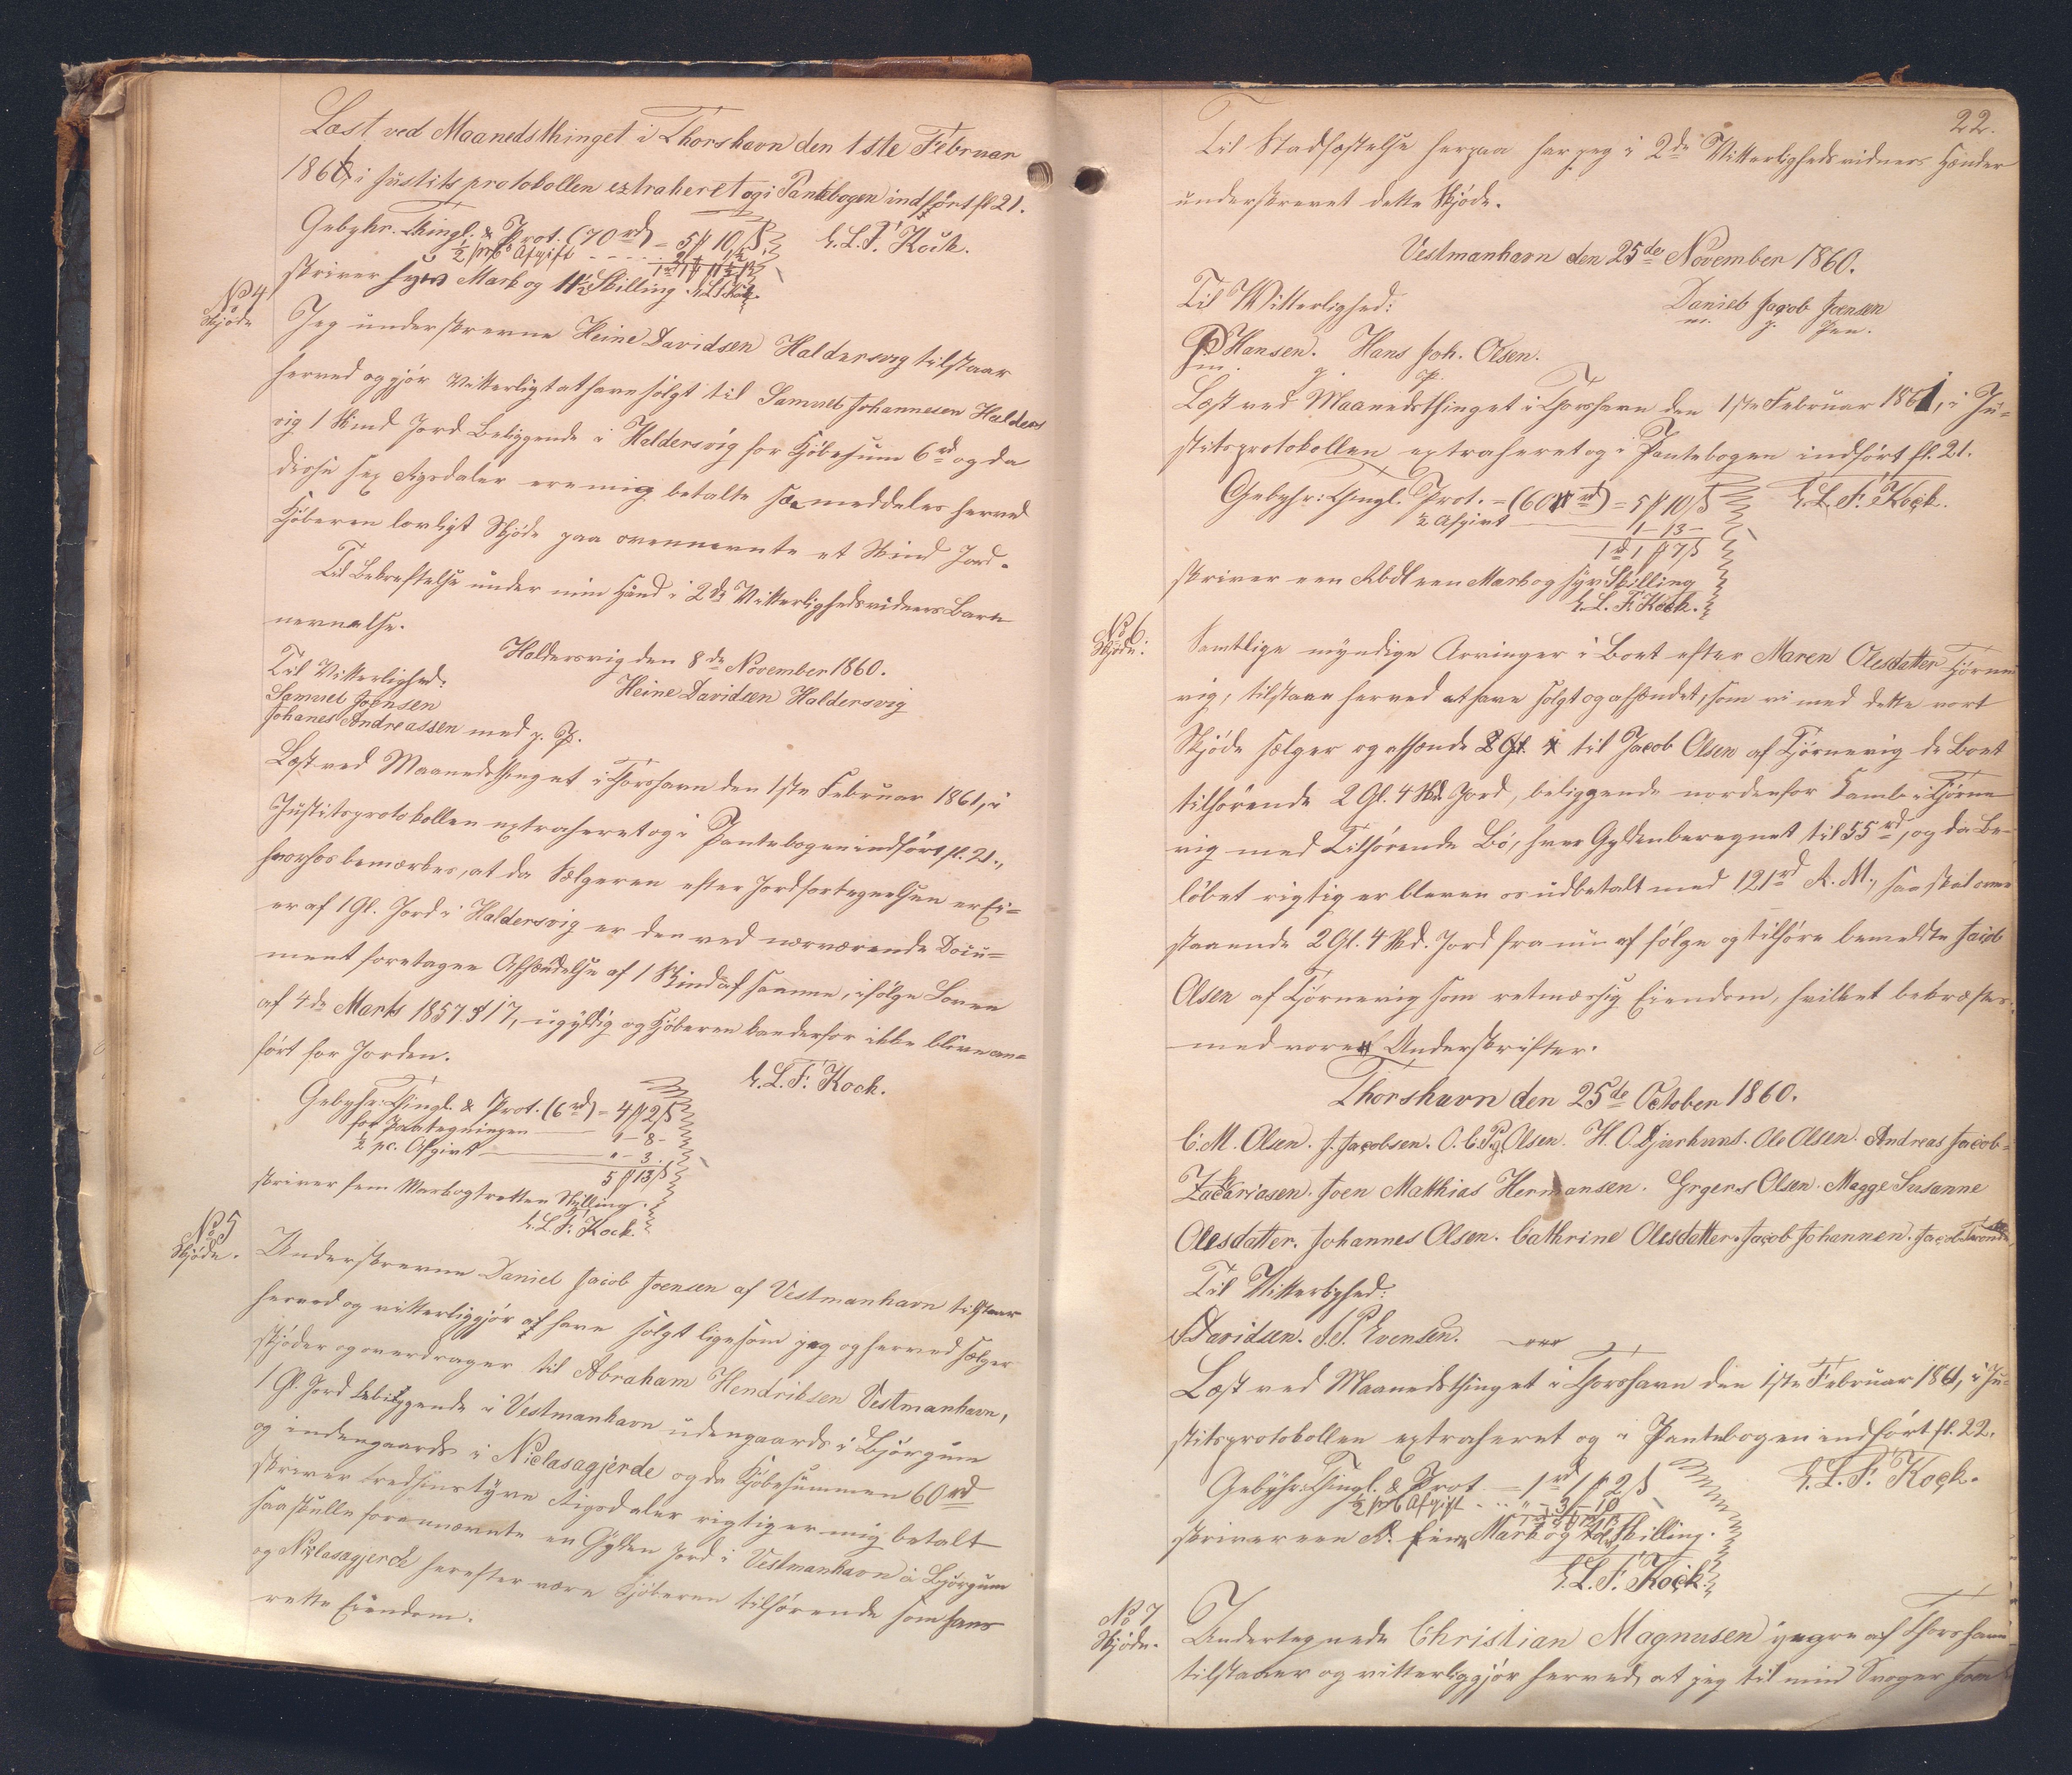 Læst ved Maanedsthinget i Thorshavn den 1ste Februar
1861, i Justitsprotokollen extraheret og i Pantebogen indført fl 21.
Gebyhr. Thingl. & Prot. (70 rd) = 5 ꟙ 10 ß E. L. F. Kock.
½ pCt Afgift
skriver Mark og 11½ Skilling. E. L. F. Kock.
No 4
Skjøde
Jeg underskrevne Heine Davidsen Haldersvig tilstaar
herved og gjør vitterligt at have solgt til Samuel Johannesen Halders
vig 1 Skind Jord beliggende i Haldersvig for Kjøbesum 6 rd og da
disse sex Rigsdaler ere mig betalte saa meddeles herved
Kjøberen lovligt Skjøde paa ovennævnte et Skind Jord.
Til Bekræftelse under min Haand i 2de Vitterlighedsvidners Over-
værelse.
Haldersvig den 8de November 1860.
Til Vitterlighed: Heine Davidsen Haldersvig
Samuel Joensen
Johanes Andreassen med p. P.
Læst ved Maanedsthinget i Thorshavn den 1ste Februar 1861, i
Justitsprotokollen extraheret og i Pantebogen indført fl. 21.,
hvorhos bemærkes, at da Sælgeren efter Jordfortegnelsen er Ei=
er af 1 Gl. Jord i Haldersvig er den ved nærværende Docu=
ment foretagne Afhændelse af 1 Skind af samme, ifølge Loven
af 4de Marts 1857 § 17, ugyldig og Kjøberen kan derfor ikke blive an=
ført for Jorden.
E. L. F. Kock.
Gebyhr: Thingl. & Prot. (6 rd) = 4 ꟙ 2 ß
for Paategningen " - 8 -
½ pc. Afgivt " - 3.
5 ꟙ 13 ß
skriver fem Mark og tretten Skilling.
E. L. F. Kock.
No 5
Skjøde.
Underskrevne Daniel Jacob Joensen af Vestmanhavn tilstaar
herved og vitterliggjør at have solgt ligesom jeg og herved sælger
skjøder og overdrager til Abraham Hendriksen Vestmanhavn,
1 Gl. Jord beliggende i Vestmanhavn udengaards i Bjørgum
og indengaards i Niclasagjerde og da Kjøbesummen 60 rd
skriver tredsindstyve Rigsdaler rigtig er mig betalt
saa skulle forannævnte en Gylden Jord i Vestmanhavn i Bjørgum
og Niclasagjerde herefter være Kjøberen tilhørende som hans
rette Eiendom.
22.
Til Stadfæstelse herpaa har jeg i 2de Vitterlighedsvidners Hænder
underskrevet dette Skjøde.
Vestmanhavn den 25de November 1860.
Til Vitterlighed: Daniel Jacob Joensen
m. p. Pen.
Hansen. Hans Joh. Olsen.
m. p. P.
Læst ved Maanedsthinget i Thorshavn den 1ste Februar 1861, i Ju=
stitsprotokollen extraheret og i Pantebogen indført fl. 21.
Gebyhr: Thingl. Prot. = (60 rd) = 5 ꟙ 10 ß E. L. F. Kock.
½ Afgivt 1 - 13 -
1 rd 1 ꟙ 7 ß
skriver een Rbdl een Mark og syv Skilling
E. L. F. Kock.
No 6.
Skjøde.
Samtlige myndige Arvinger i Boet efter Maren Olesdatter Tjørne
vig, tilstaae herved at have solgt og afhændet, som vi med dette vort
Skjøde sælger og afhænde til Jacob Olsen af Tjørnevig de Boet
tilhørende 2 Gl. 4 Skd. Jord, beliggende nordenfor Kamb i Tjørne
vig med Tilhørende Bø, hver Gylden beregnet til 55 rd, og da Be-
løbet rigtig er bleven os udbetalt med 121 rd R. M., saa skal oven
staaende 2 Gl. 4 Skd. Jord fra nu af følge og tilhøre bemeldte Jacob
Olsen af Tjørnevig som retmæssig Eiendom, hvilket bekræftes
med vore Underskrifter.
Thorshavn den 25de October 1860.
C. M. Olsen. J. Jacobsen. O. C. Pg. Olsen. H. O. Djurhuus. Ole Olsen. Andreas Jacob=
Zacariasen. Joen Matthias Hermansen. Grgers Olsen. Magge Susanne
Olesdatter. Johannes Olsen. Cathrine Olesdatter. Jacob Johannen. Jacob
Til Vitterlighed:
Davidsen. J. P. Evensen.
Læst ved Maanedsthinget i Thorshavn den 1ste Februar 1861, i Ju=
stitsprotokollen extraheret og i Pantebogen indført fl. 22.
Gebyhr: Thingl. & Prot = 1 rd 1 ꟙ 2 ß E. L. F. Kock.
½ pCt Afgift " - 3 - 10
skriver een R. Mark og Skilling.
E. L. F. Kock.
No 7
Skjøde.
Undertegnede Christian Magnusen yngre af Thorshavn
tilstaaer og vitterliggjør herved, at jeg til min Svoger Joen